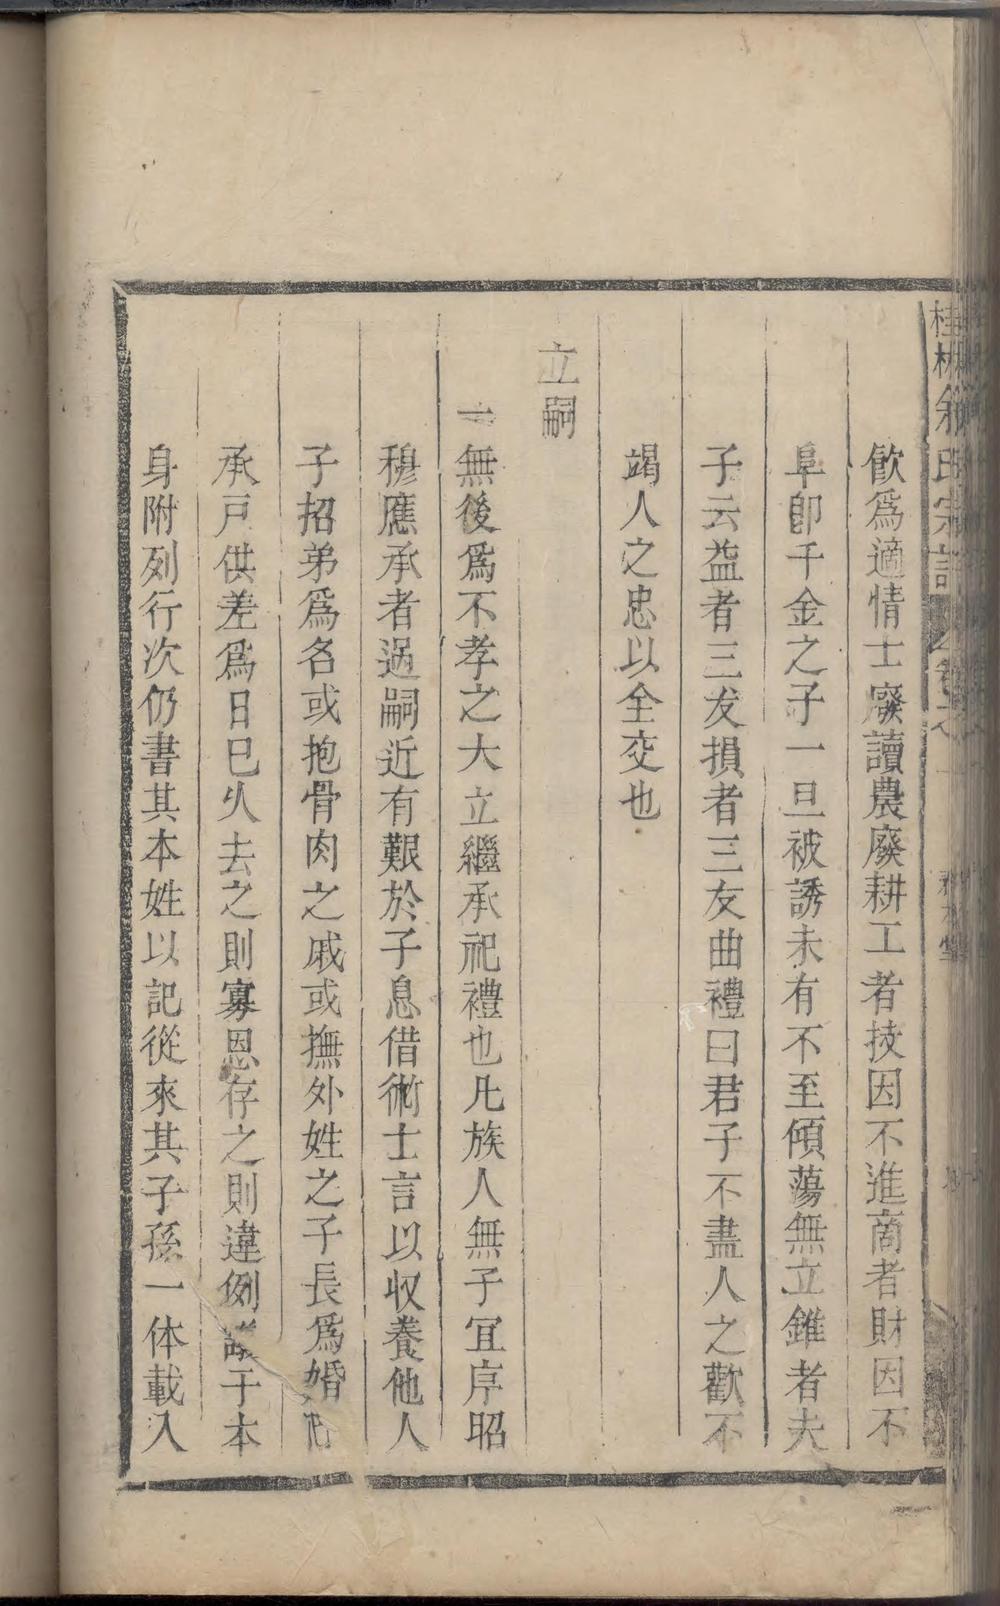 飲爲適情士廢讀農廢耕工者技因不進商者財因不
阜卽千金之子一旦被誘未有不至傾蕩無立錐者夫
子云益者三友損者三友曲禮曰君子不盡人之歡不
竭人之忠以全交也
立嗣
一無後爲不孝之大立繼承祀禮也凡族人無子宜序昭
穆應承者過嗣近有艱於子息借術士言以収養他人
子招弟爲名或抱骨肉之戚或撫外姓之子長爲婚配
承戸供差爲日已久去之則寡恩存之則違例議于本
身附列行次仍書其本姓以記從來其子孫一体載入